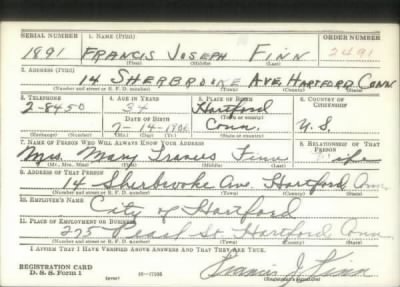 SERIAL NUMBER 1. NAME (Print) ORDER NUMBER
1891 FRANCIS JOSEPH FINN 2491
(First) (Middle) (Last)
2. ADDRESS (Print)
14 SHERBROOKE AVE, HARTFORD CONN
(Number and street or R. F. D. number) (Town) (County) (State)
3. TELEPHONE 4. AGE IN YEARS 5. PLACE OF BIRTH 6. COUNTRY OF CITIZENSHIP
2-8450 34 Hartford
DATE OF BIRTH (Town or county)
7-14-1906 Conn. U.S.
(Exchange) (No.) (Mo.) (Day) (Yr.) (State or country)
7. NAME OF PERSON WHO WILL ALWAYS KNOW YOUR ADDRESS 8. RELATIONSHIP OF THAT PERSON
Mrs Mary Frances Finn
(Mr., Mrs., Miss) (First) (Middle) (Last)
9. ADDRESS OF THAT PERSON
14 Sherbrooke Ave. Hartford Conn
(Number and street or R. F. D. number) (Town) (County) (State)
10. EMPLOYER'S NAME
City of Hartford
11. PLACE OF EMPLOYMENT OR BUSINESS
275 Pearl St Hartford Conn
(Number and street or R. F. D. number) (Town) (County) (State)
I AFFIRM THAT I HAVE VERIFIED ABOVE ANSWERS AND THAT THEY ARE TRUE.
REGISTRATION CARD
D. S. S. FORM 1 Francis J. Finn